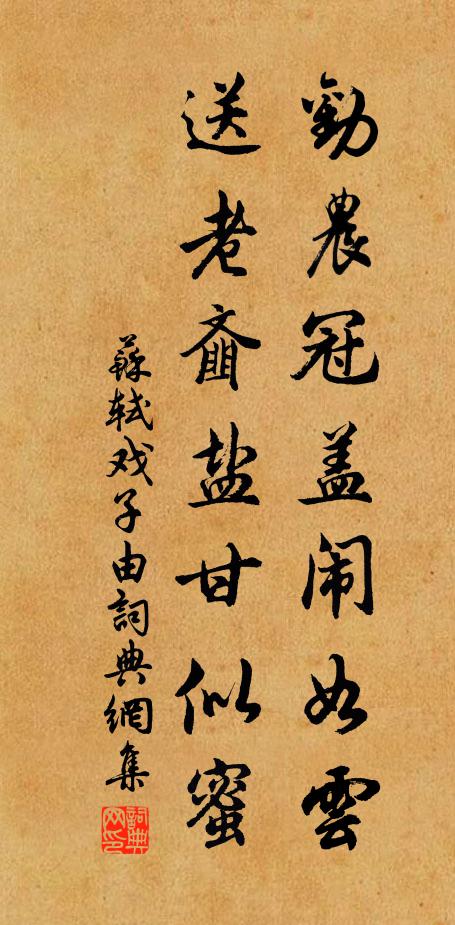 勸農冠盖闹如雲
送老齑盐甘似蜜
蘇軾戏子由詞典網集
詞典网印